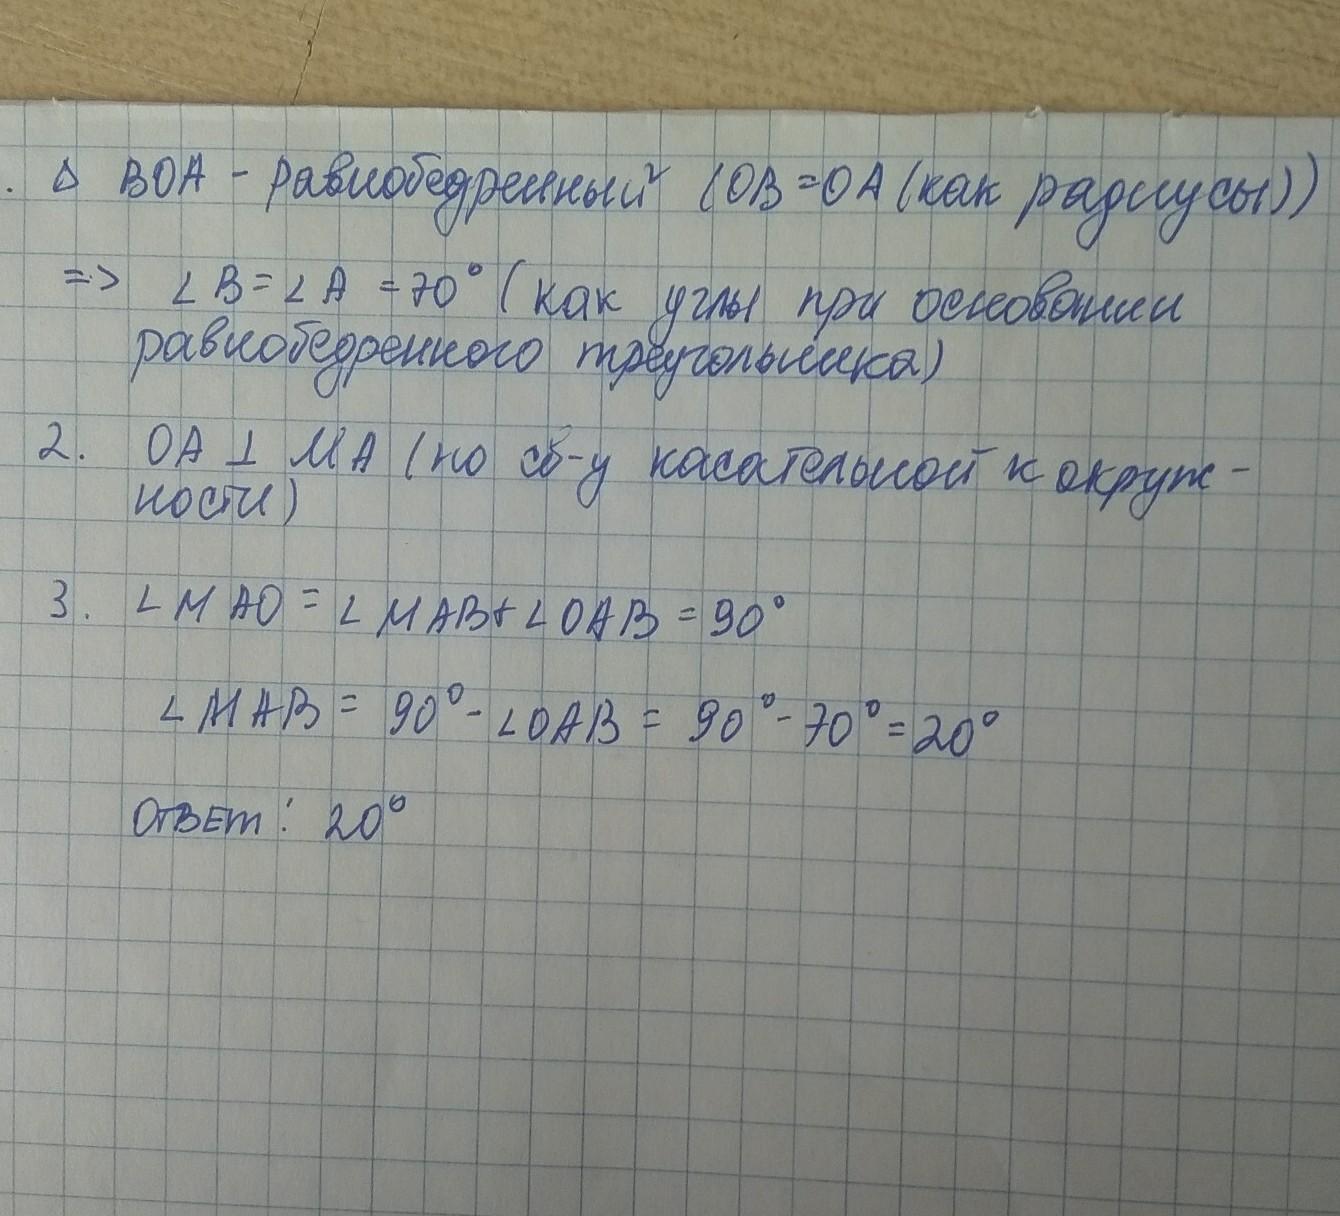 . Δ BOA - равнобедренный (OB = OA (как радиусы))
=> ∠B = ∠A = 70° (как углы при основании
равнобедренного треугольника)
2. OA ⊥ MA (по св-у касательной к окруж-
ности)
3. ∠MAO = ∠MAB + ∠OAB = 90°
∠MAB = 90° - ∠OAB = 90° - 70° = 20°
Ответ: 20°